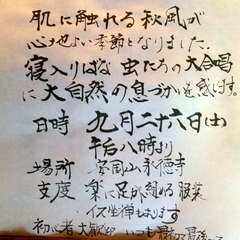 肌に触れる秋風が
心地よい季節となりました.
寝入りばな 虫たちの大合唱
に大自然の息づかいを感じます。
日時 九月二十六日(土)
午后八時より
場所 岡山永徳寺
支度 楽に足が組める服装
イス坐禅もあります
初心者大歓迎 いつも